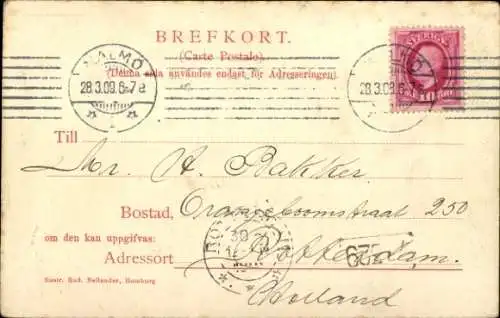 BREFKORT.
(Carte Postale).
(Denna sida användes endast för Adresseringen)
MALMÖ
28.3.09.6-7e
SVERIGE
10
Till Mr. A. Bakker.
Bostad, Oranjeboomstraat 250
om den kan uppgifvas:
Adressort Rotterdam.
Holland
675
30
Kunstr. Rud. Nellander, Hamburg